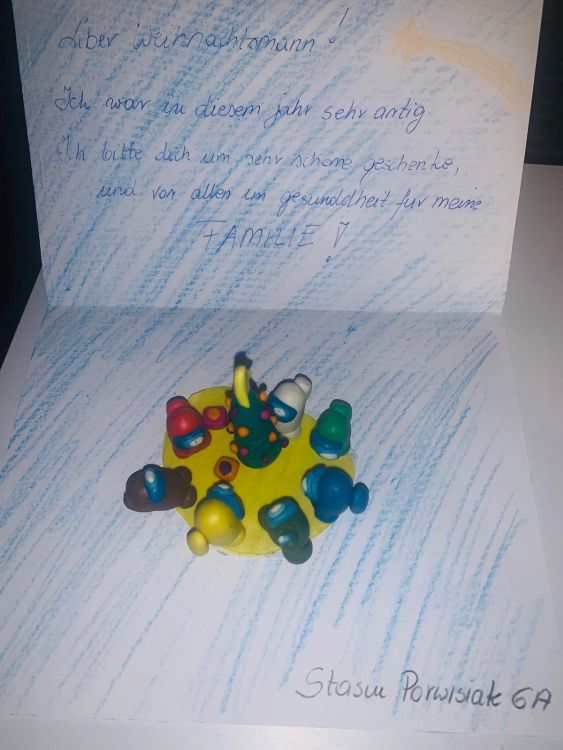 Liber Weihnachtsmann!
Ich war in diesem jahr sehr artig.
Ich bitte dich um sehr schöne geschenke,
und vor allem um gesunddheit fur meine
FAMILIE!
Stasiu Porwisiak 6A